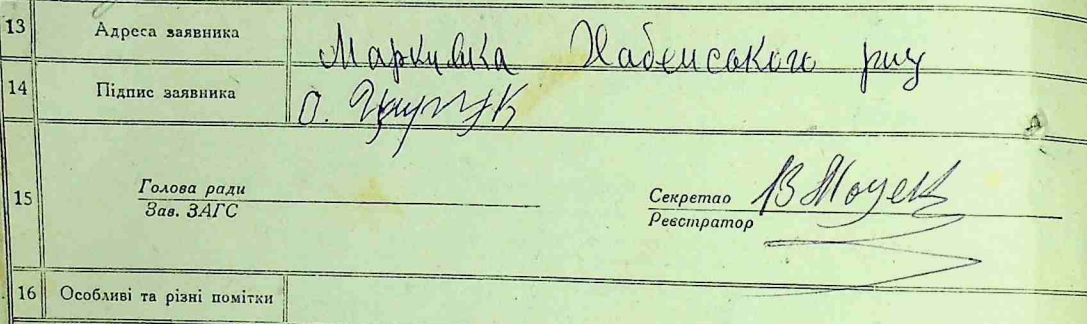 13 Адреса заявника Маркивка Хабенського рну
14 Підпис заявника О.
15 Голова ради
Зав. ЗАГС
Секретао
Реєстратор
16 Особливі та різні помітки